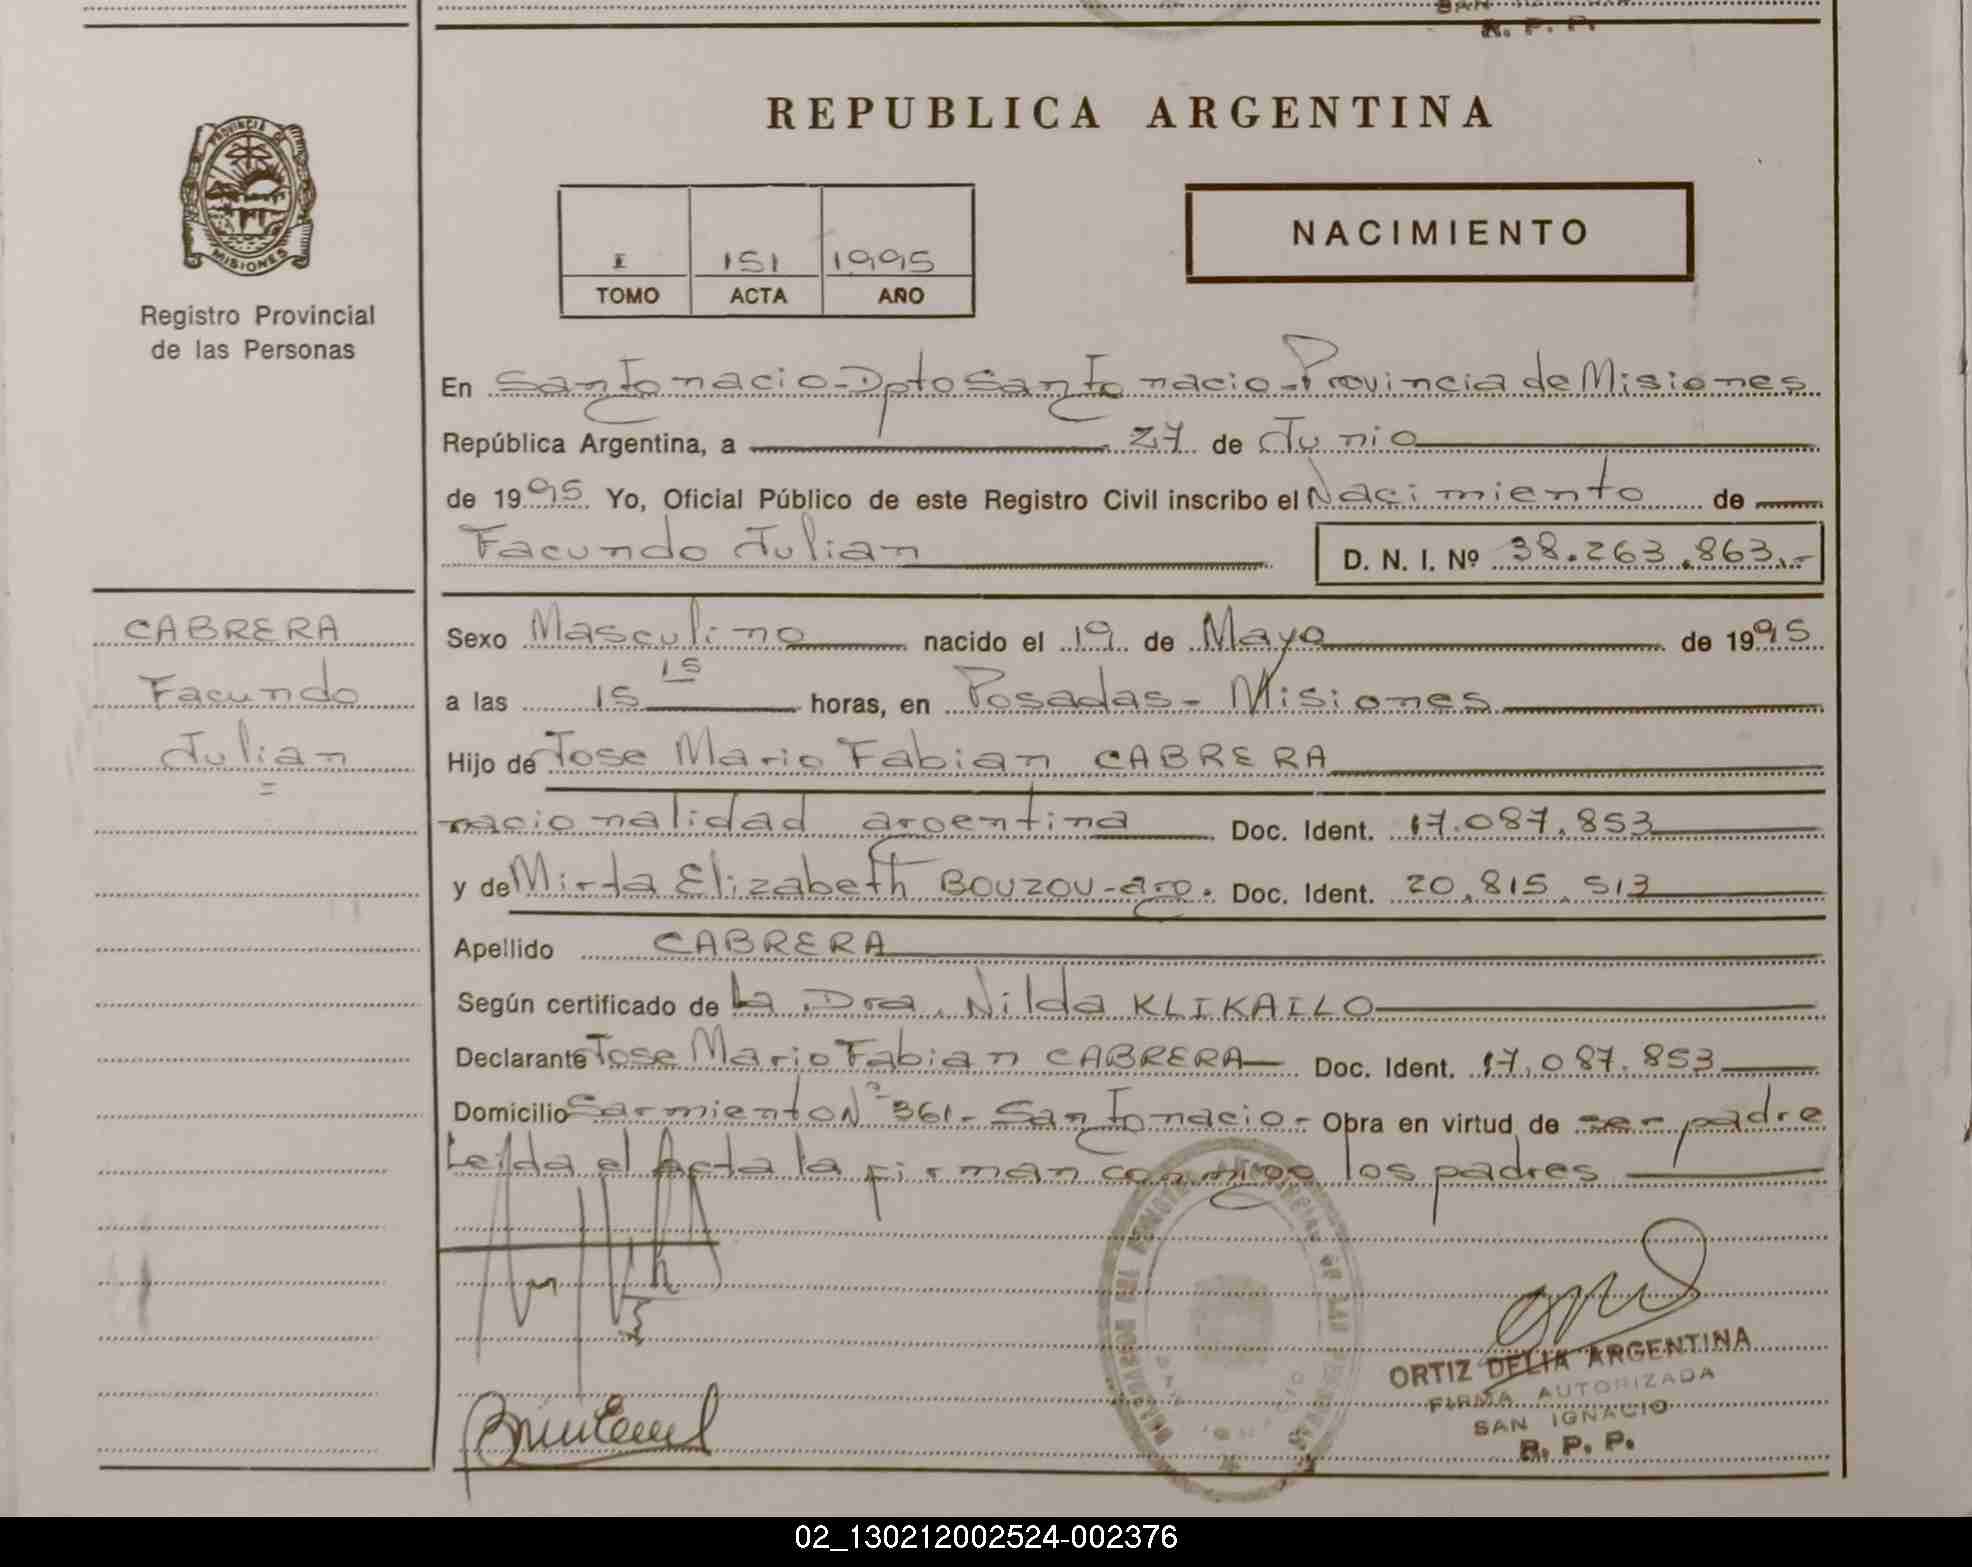 R. P. P.
REPUBLICA ARGENTINA
PROVINCIA DE
MISIONES
Registro Provincial
de las Personas
I 151 1995
TOMO ACTA AÑO
NACIMIENTO
En San Ignacio - Dpto San Ignacio - Provincia de Misiones
República Argentina, a 27 de Junio
de 1995 Yo, Oficial Público de este Registro Civil inscribo el Nacimiento de
Facundo Julian D. N. I. Nº 38.263.863.-
CABRERA
Facundo
Julian
Sexo Masculino nacido el 19 de Mayo de 1995
a las 15 15 horas, en Posadas - Misiones
Hijo de Jose Mario Fabian CABRERA
nacionalidad argentina Doc. Ident. 17.087.853
y de Mirta Elizabeth BOUZOU - arg. Doc. Ident. 20.815.513
Apellido CABRERA
Según certificado de la Dra. Nilda KLIKAILO
Declarante Jose Mario Fabian CABRERA Doc. Ident. 17.087.853
Domicilio Sarmiento Nº 361 - San Ignacio - Obra en virtud de ser padre
Leida el Acta la firman conmigo los padres
ORTIZ DELIA ARGENTINA
FIRMA AUTORIZADA
SAN IGNACIO
R. P. P.
02_130212002524-002376